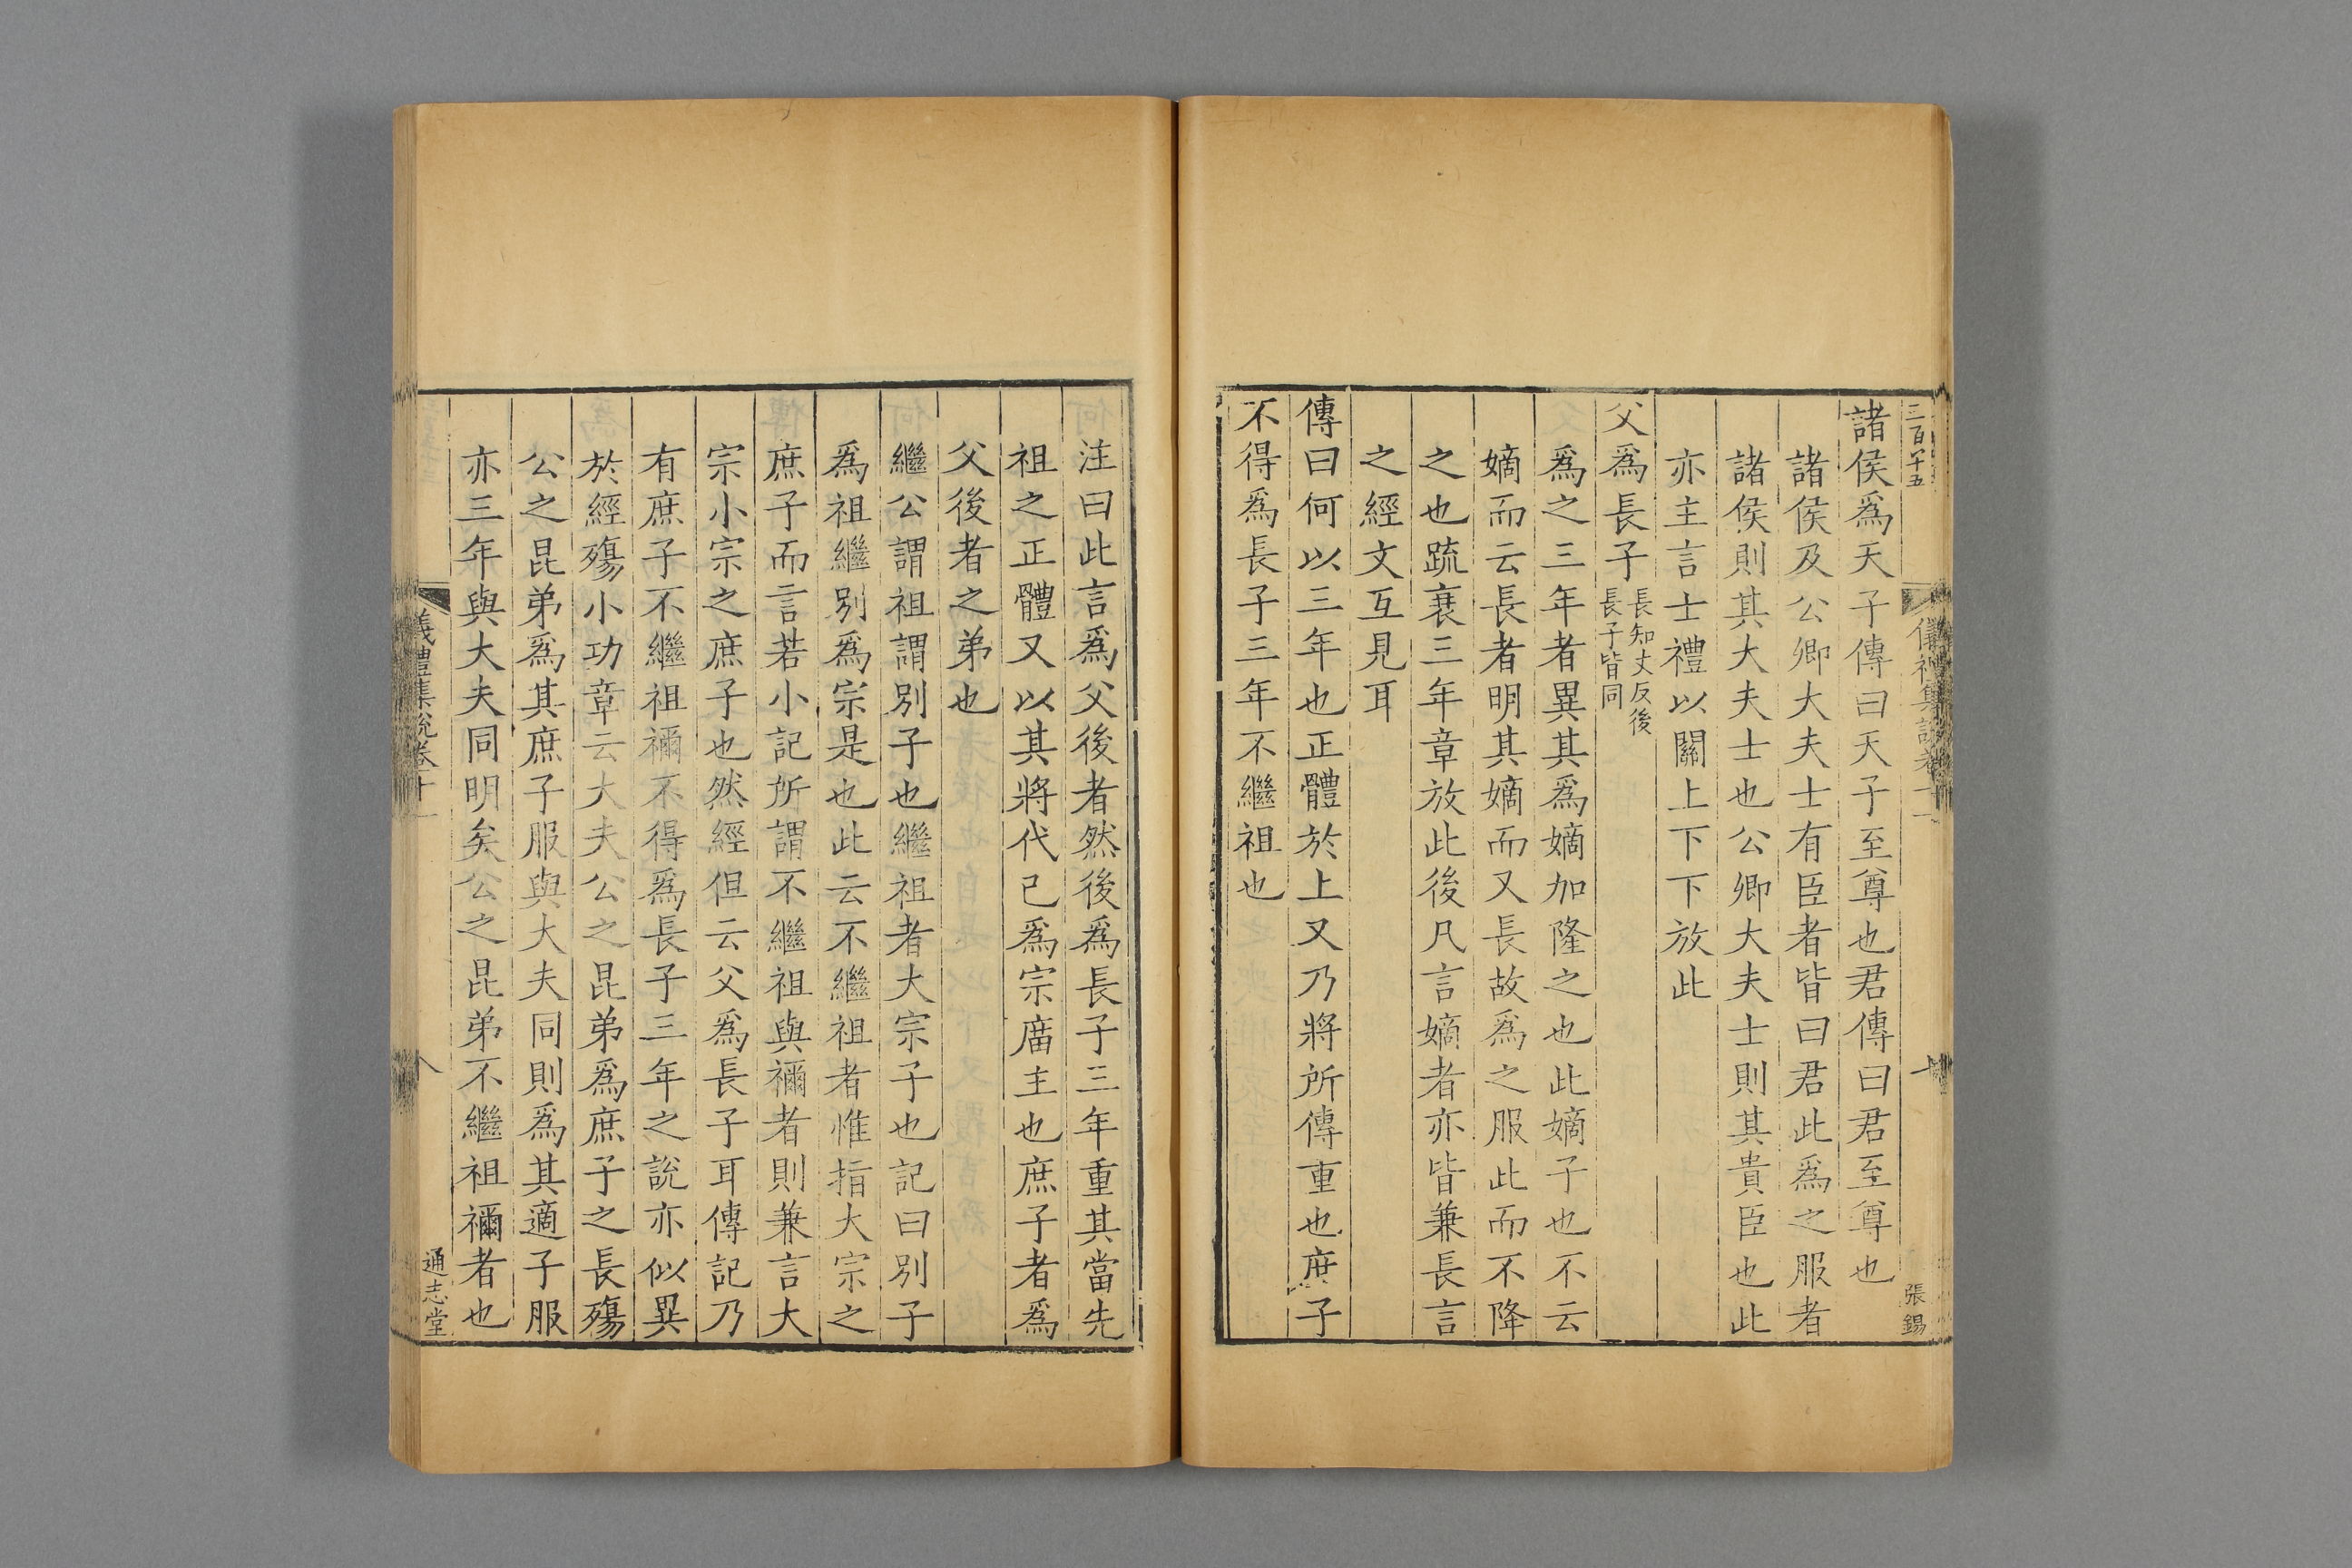 諸侯爲天子傳曰天子至尊也君傳曰君至尊也
諸侯及公卿大夫士有臣者皆曰君此爲之服者
諸侯則其大夫士也公卿大夫士則其貴臣也此
亦主言士禮以關上下下放此
父爲長子長知丈反後長子皆同
爲之三年者異其爲嫡加隆之也此嫡子也不云
嫡而云長者明其嫡而又長故爲之服此而不降
之也疏衰三年章放此後凡言嫡者亦皆兼長言
之經文互見耳
傳曰何以三年也正體於上又乃將所傳重也庶子
不得爲長子三年不繼祖也
張錫
注曰此言爲父後者然後爲長子三年重其當先
祖之正體又以其將代己爲宗廟主也庶子者爲
父後者之弟也
繼公謂祖謂別子也繼祖者大宗子也記曰別子
爲祖繼別爲宗是也此云不繼祖者惟指大宗之
庶子而言若小記所謂不繼祖與禰者則兼言大
宗小宗之庶子也然經但云父爲長子耳傳記乃
有庶子不繼祖禰不得爲長子三年之說亦似異
於經殤小功章云大夫公之昆弟爲庶子之長殤
公之昆弟爲其庶子服與大夫同則爲其適子服
亦三年與大夫同明矣公之昆弟不繼祖禰者也
儀禮集說卷十一
八
通志堂